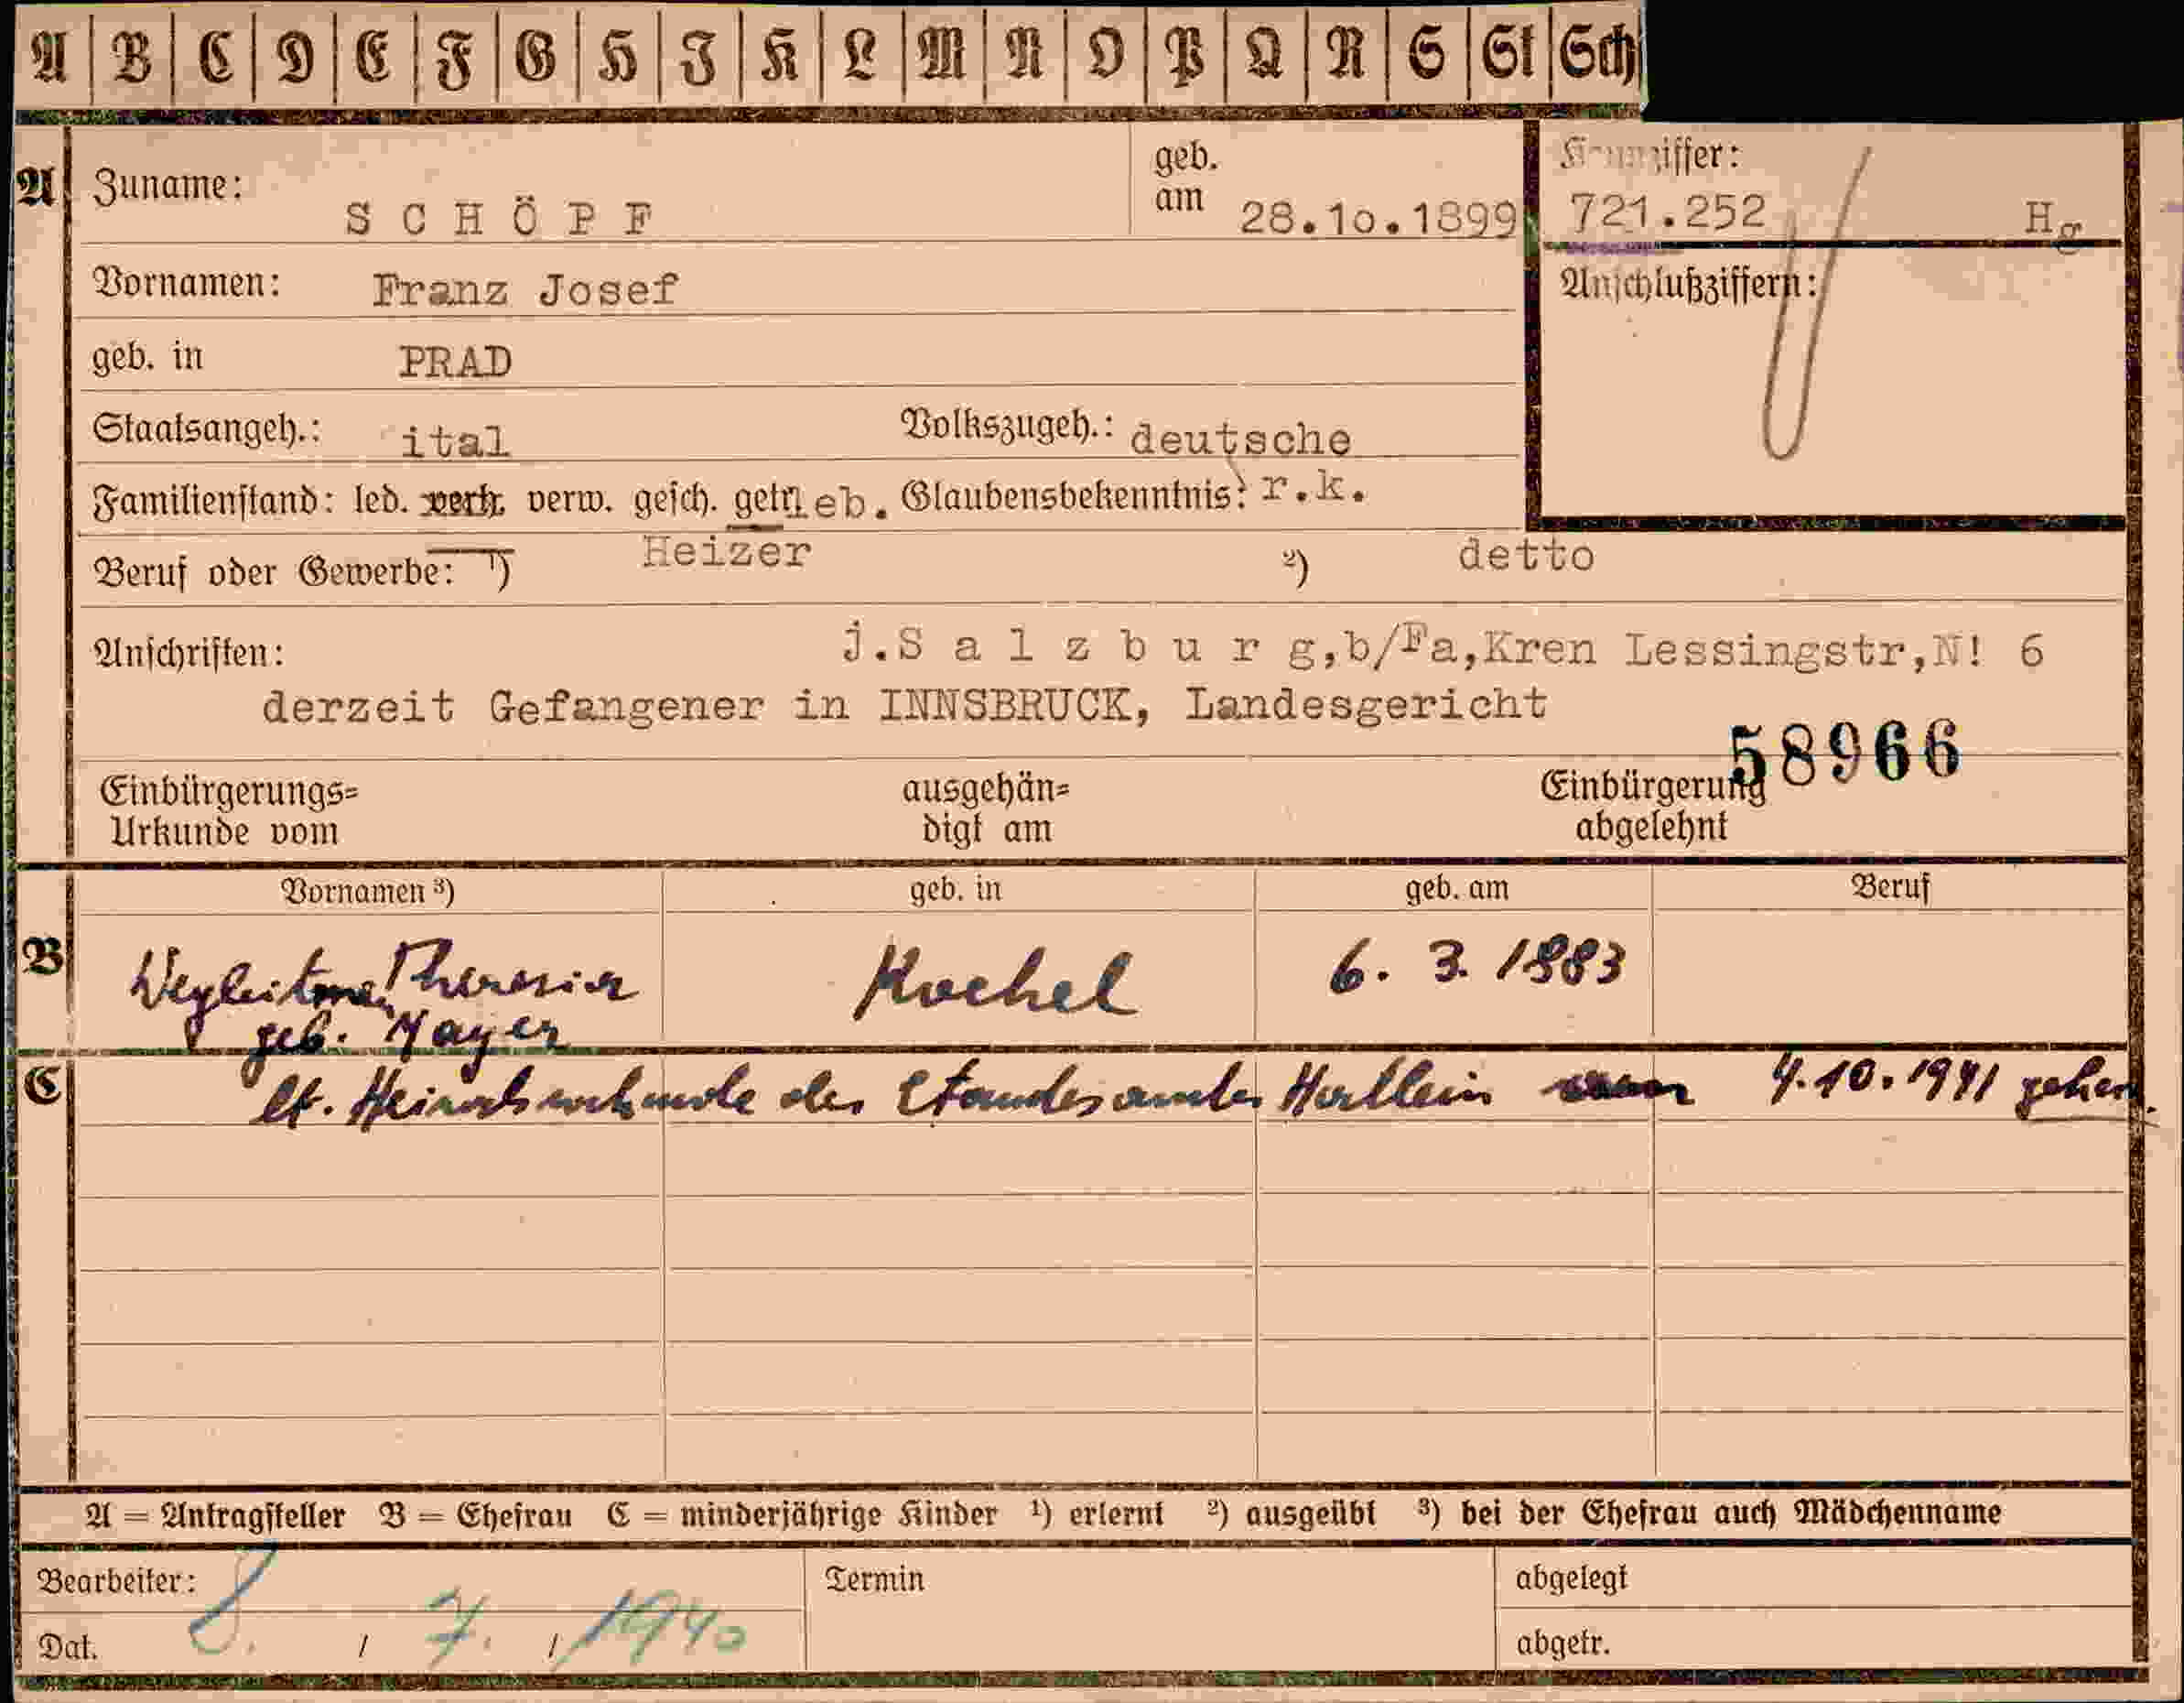 A B C D E F G H I K L M N O P Q R S St Sch
A Zuname: SCHÖPF geb. am 28.10.1899
721.252 Hg
Anschlußziffern:
Vornamen: Franz Josef
geb. in PRAD
Staatsangeh.: ital Volkszugeh.: deutsche
Familienstand: led. verh. verw. gesch. getr. leb. Glaubensbekenntnis: r.k.
Beruf oder Gewerbe: 1) Heizer 2) detto
Anschriften: j.S a l z b u r g,b/Fa,Kren Lessingstr,N! 6
derzeit Gefangener in INNSBRUCK, Landesgericht
58966
Einbürgerungs= ausgehän= Einbürgerung
Urkunde vom digt am abgelehnt
Vornamen 3) geb. in geb. am Beruf
B Theresia Kochel 6. 3. 1883
geb. Mayer
C lt. Heiratsurkunde des Standesamtes Hallein 4.10.1941
A = Antragsteller B = Ehefrau C = minderjährige Kinder 1) erlernt 2) ausgeübt 3) bei der Ehefrau auch Mädchenname
Bearbeiter: Termin abgelegt
Dat. 8. / 7. / 1940 abgetr.